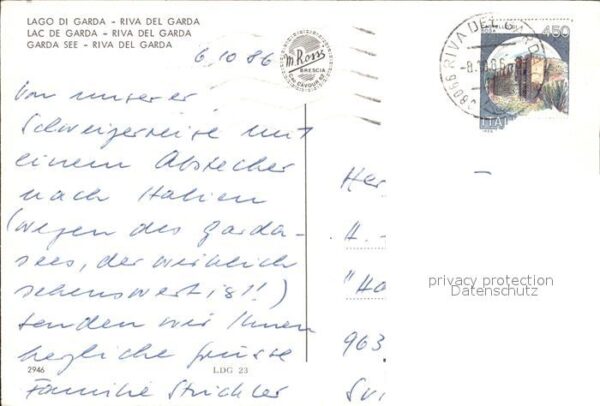 LAGO DI GARDA - RIVA DEL GARDA
LAC DE GARDA - RIVA DEL GARDA
GARDA SEE - RIVA DEL GARDA
6.10 86
m. Rossi
BRESCIA
C.so CAVOUR
38066 RIVA DEL GARDA
-8.10.86
450
ITALIA
Von unserer
Schweizerreise mit
einem Abstecher
nach Italien
(wegen des Garda-
sees, der wirklich
sehenswert ist!)
senden wir Ihnen
herzliche Grüsse
Familie Strickler
Her
H. -
"Ho
963
Svi
privacy protection
Datenschutz
2946
LDG 23